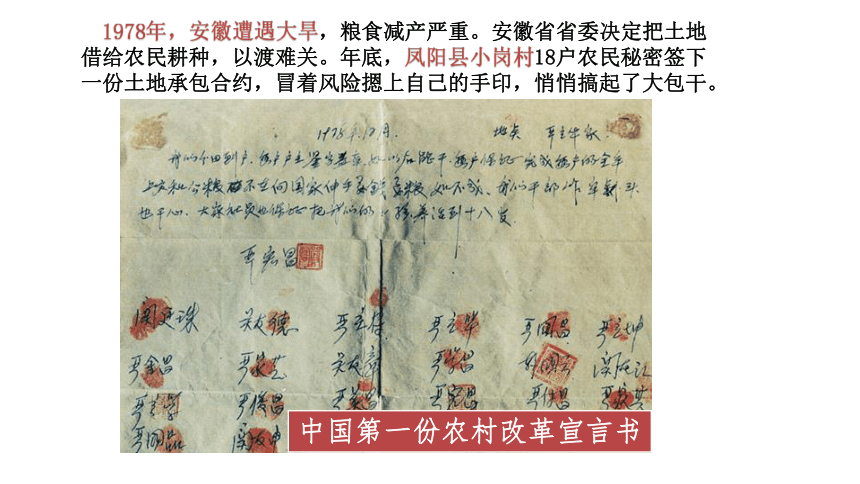 1978年，安徽遭遇大旱，粮食减产严重。安徽省省委决定把土地
借给农民耕种，以渡难关。年底，凤阳县小岗村18户农民秘密签下
一份土地承包合约，冒着风险摁上自己的手印，悄悄搞起了大包干。
1978年12月. 地点 严立华家
我们分田到户.每户户主签字盖章.如以后能干.每户保证完成每户的全年
上交和公粮.不在向国家伸手要钱要粮.如不成.我们干部作牢剎头
也干心.大家社员也保证把我们的小孩养活到十八岁.
严宏昌
关友德 严立华 严国昌 严立坤
严金昌
严俊昌
中国第一份农村改革宣言书